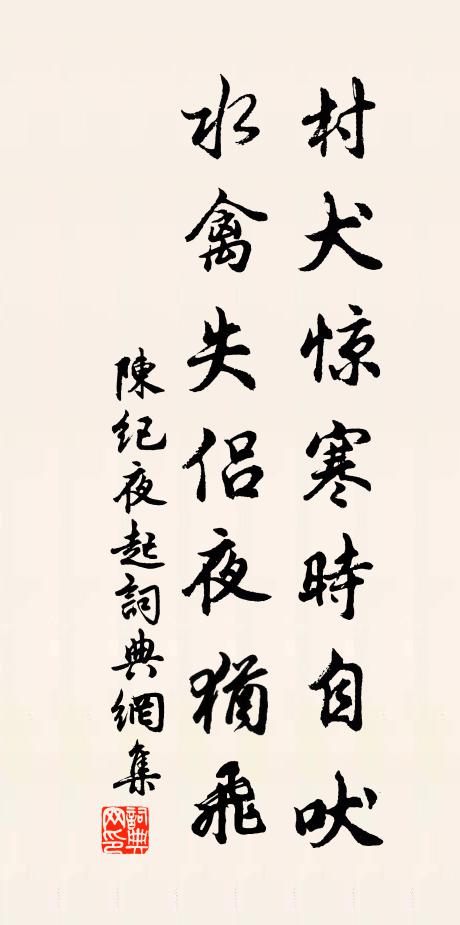 村犬惊寒時自吠
水禽失侣夜猶飛
陳紀夜起詞典網集
詞典
网印